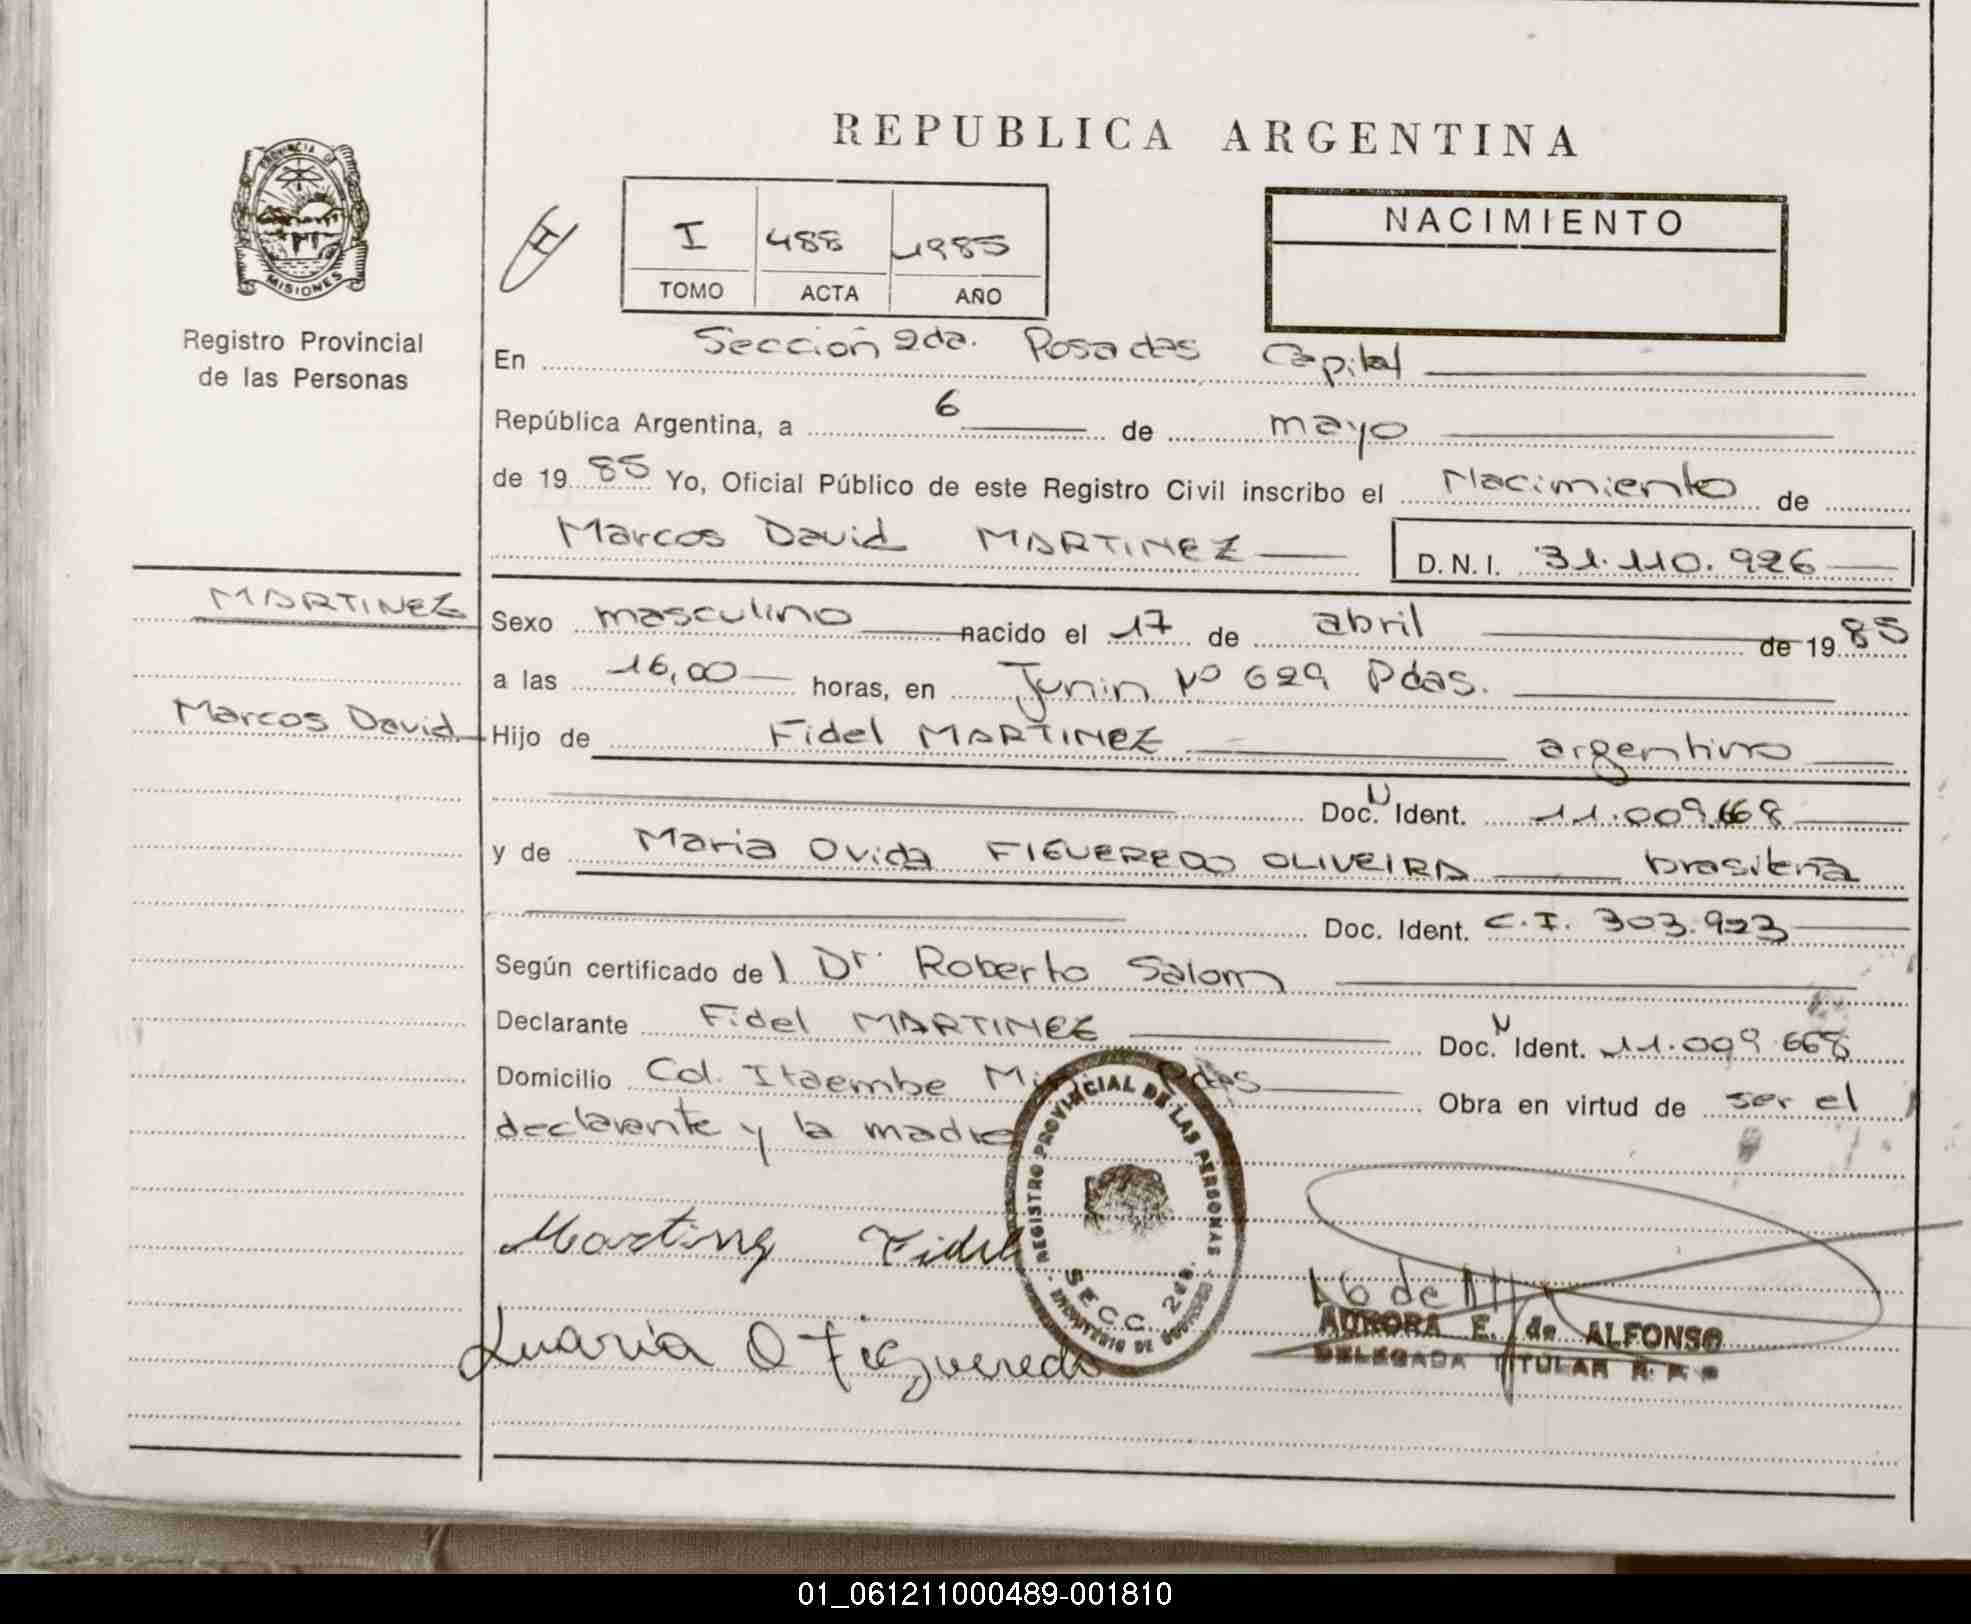 REPUBLICA ARGENTINA
PROVINCIA DE
MISIONES
Registro Provincial
de las Personas
H
I 488 1985
TOMO ACTA AÑO
NACIMIENTO
En Sección 2da. Posadas Capital
República Argentina, a 6 de mayo
de 1985 Yo, Oficial Público de este Registro Civil inscribo el Nacimiento de
Marcos David MARTINEZ D.N.I. 31.110.926
MARTINEZ
Sexo masculino nacido el 17 de abril de 1985
a las 16,00 horas, en Junin Nº 629 Pdas.
Marcos David
Hijo de Fidel MARTINEZ argentino
Doc. N Ident. 11.009.668
y de Maria Ovida FIGUEREDO OLIVEIRA brasileña
Doc. Ident. C.I. 303.923
Según certificado del Dr. Roberto Salom
Declarante Fidel MARTINEZ Doc. N Ident. 11.009.668
Domicilio Col. Itaembe Pdas Obra en virtud de ser el
declarante y la madre
Martinez Fidel
REGISTRO PROVINCIAL DE LAS PERSONAS
SECC. 2da.
16 de
AURORA E. de ALFONSO
DELEGADA TITULAR R. P. P
Maria O Figueredo
01_061211000489-001810